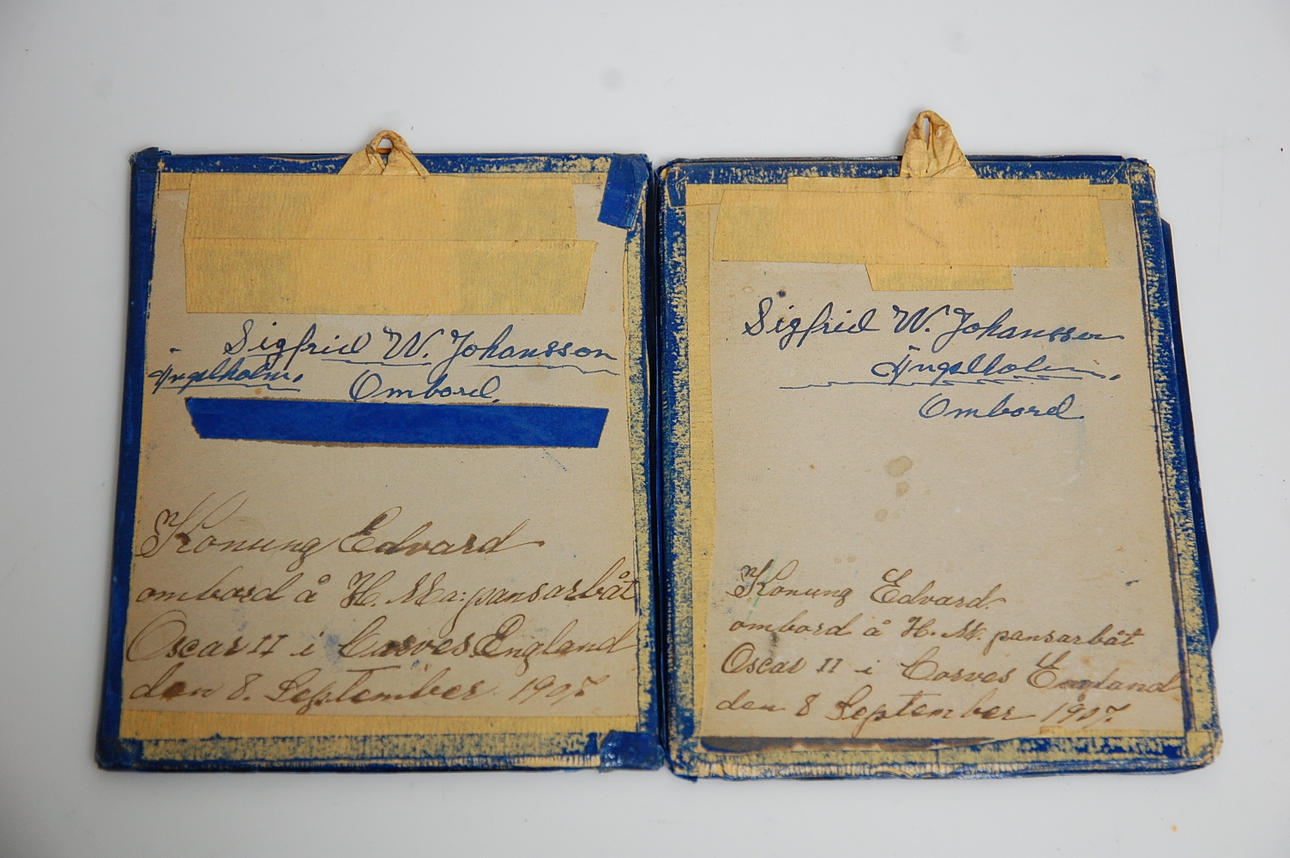 Sigfrid W. Johansson
Ängelholm.
Ombord.
Konung Edvard
ombord å H. Ma: pansarbåt
Oscar II i Corves England
den 8. September 1907
Sigfrid W. Johansson
Ängelholm.
Ombord
Konung Edvard
ombord å H. M. pansarbåt
Oscar II i Corves England
den 8 September 1907.